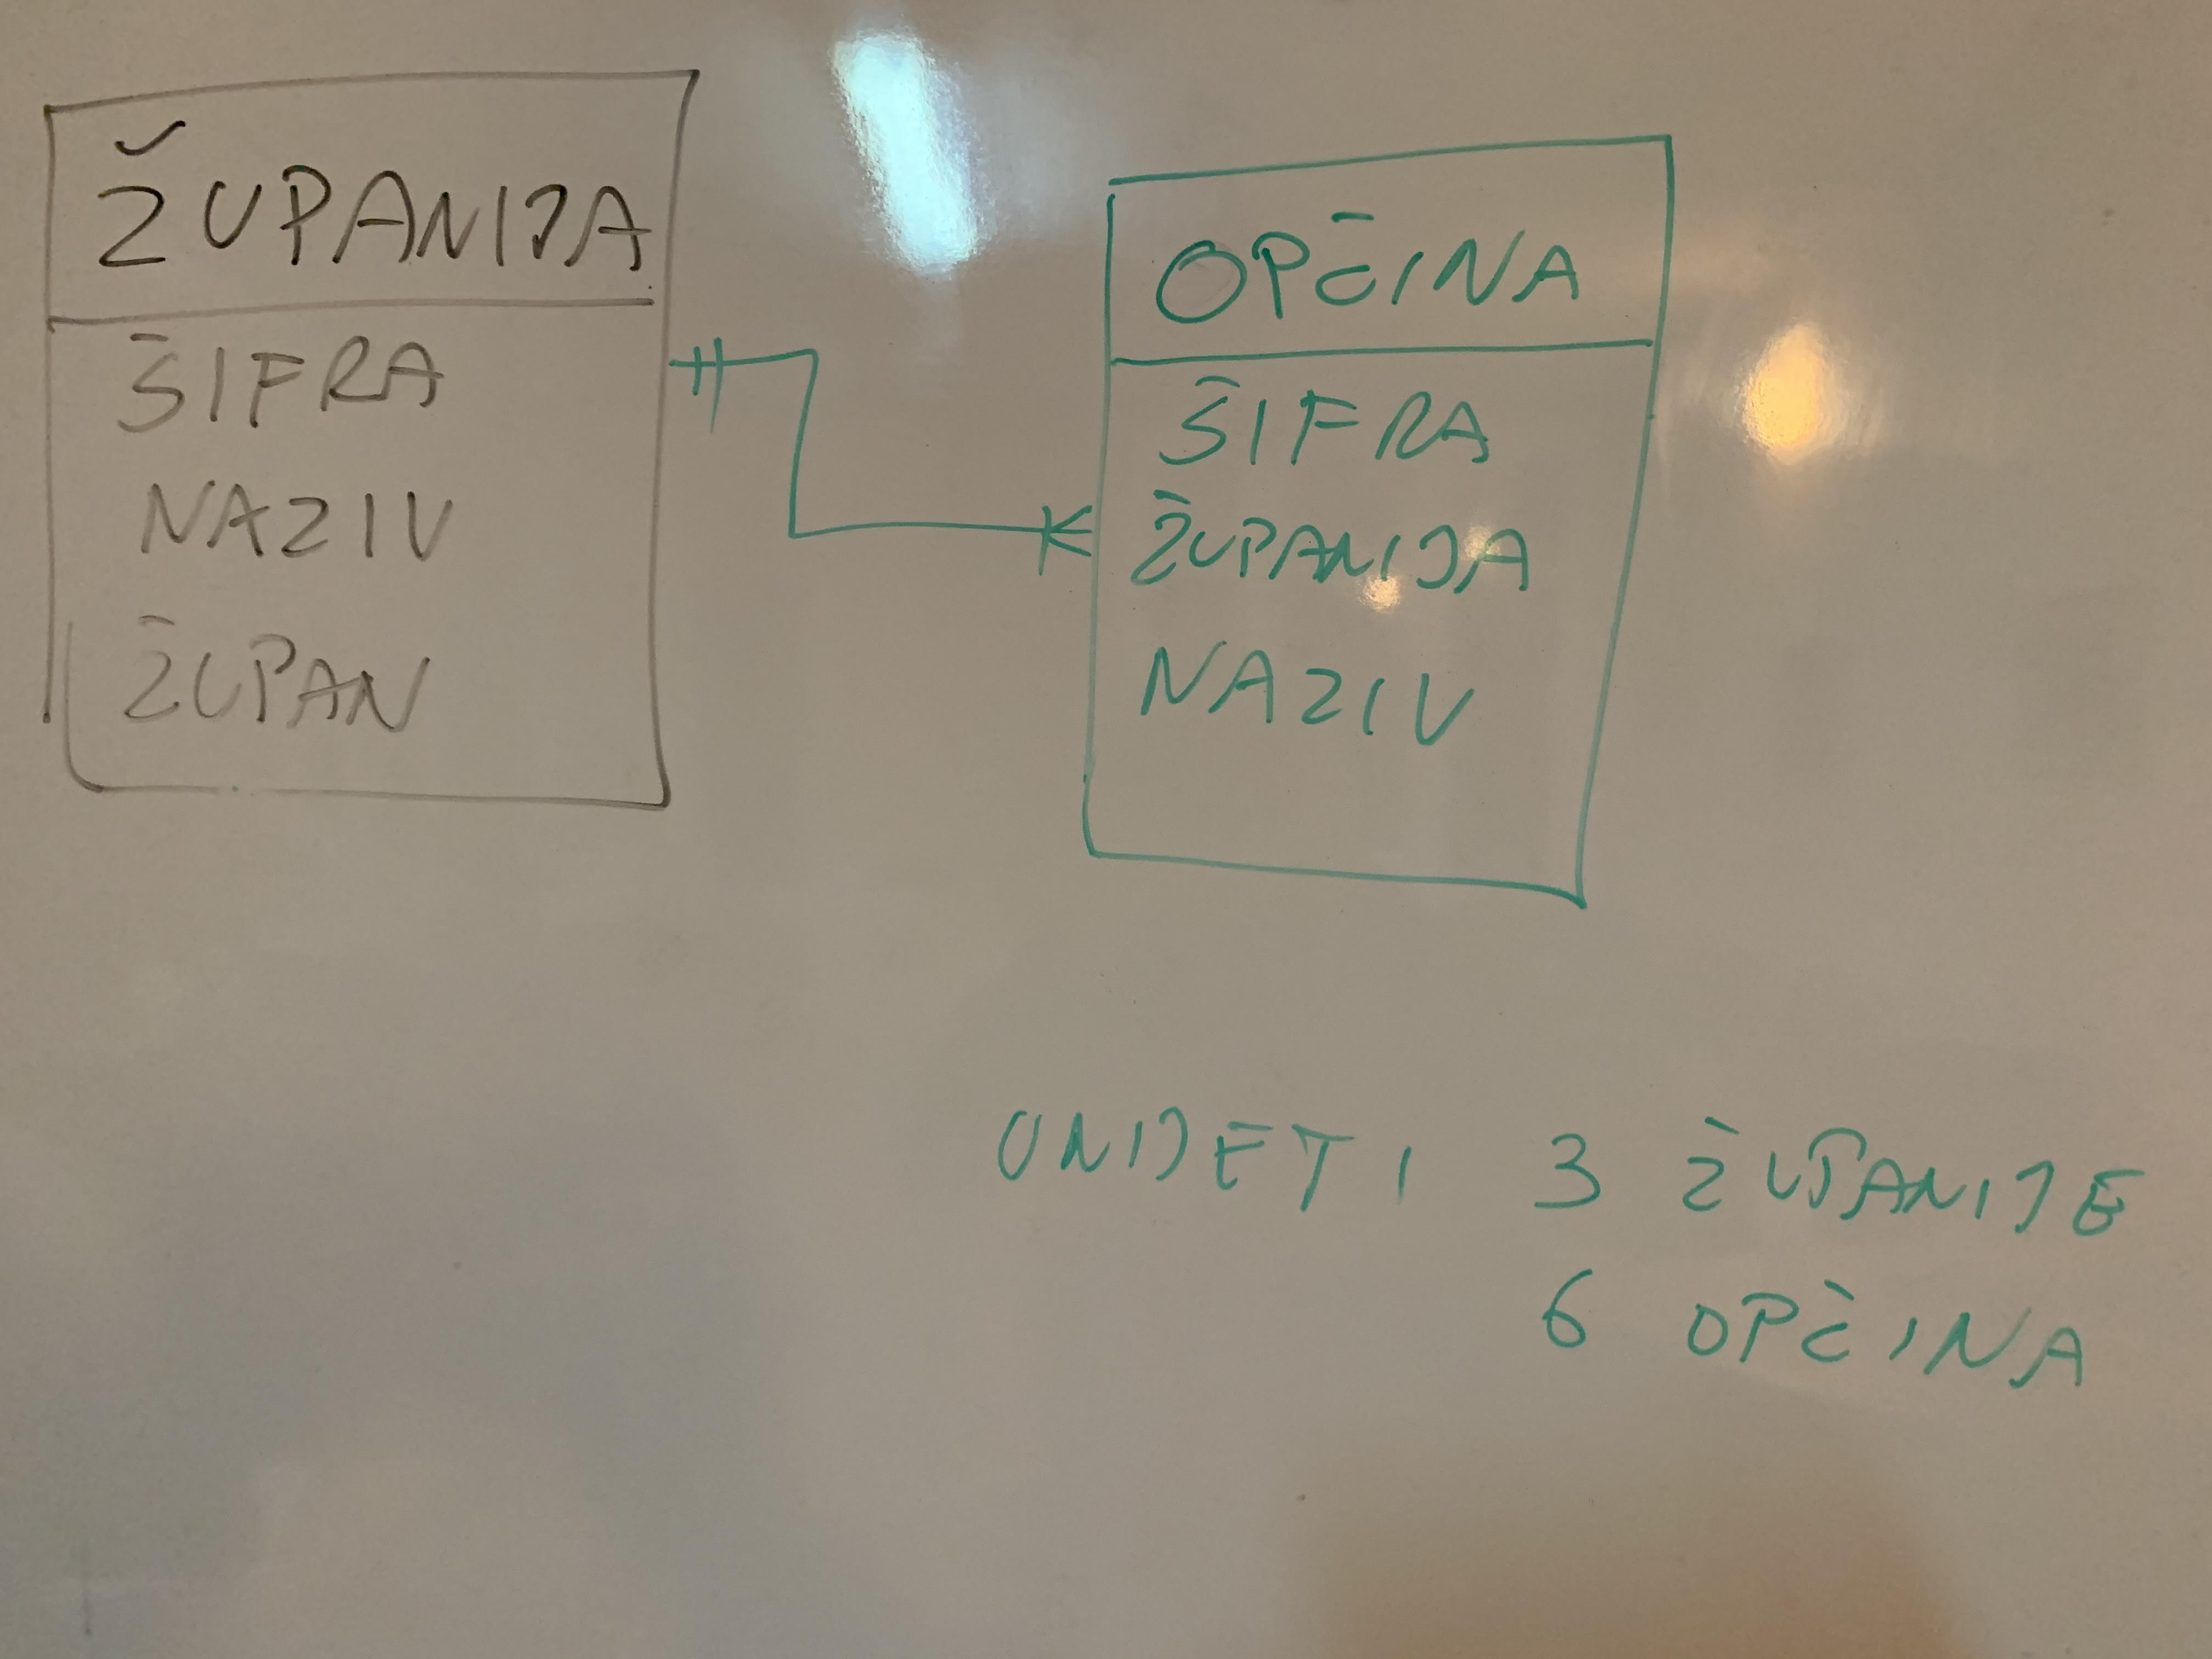 ŽUPANIJA
ŠIFRA
NAZIV
ŽUPAN
OPĆINA
ŠIFRA
ŽUPANIJA
NAZIV
UNIJETI 3 ŽUPANIJE
6 OPĆINA